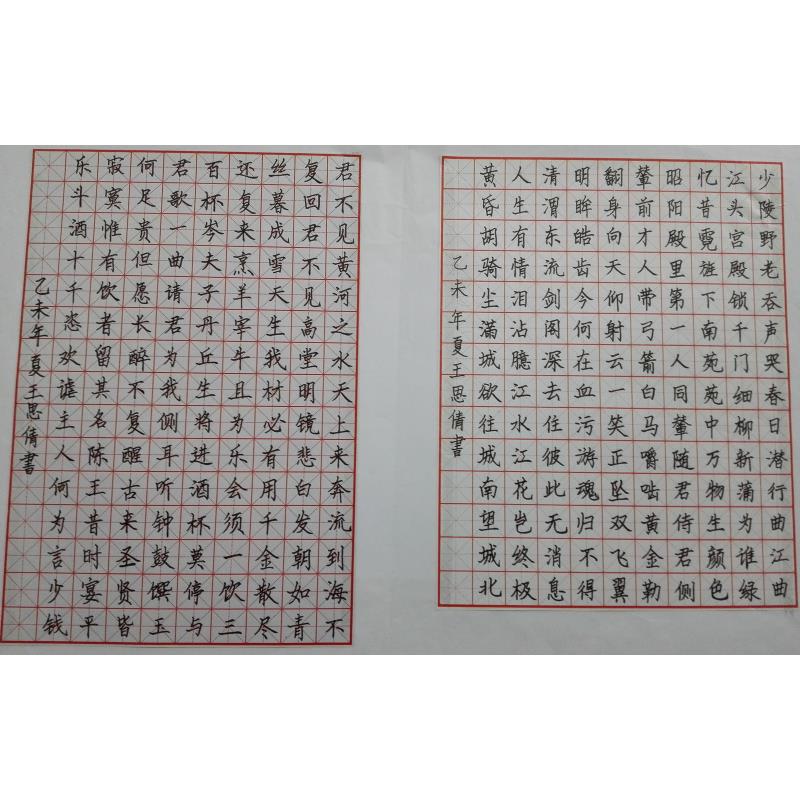 少陵野老吞声哭春日潜行曲江曲
江头宫殿锁千门细柳新蒲为谁绿
忆昔霓旌下南苑苑中万物生颜色
昭阳殿里第一人同辇随君侍君侧
辇前才人带弓箭白马嚼啮黄金勒
翻身向天仰射云一笑正坠双飞翼
明眸皓齿今何在血污游魂归不得
清渭东流剑阁深去住彼此无消息
人生有情泪沾臆江水江花岂终极
黄昏胡骑尘满城欲往城南望城北
乙未年夏王思倩書
君不见黄河之水天上来奔流到海不
复回君不见高堂明镜悲白发朝如青
丝暮成雪天生我材必有用千金散尽
还复来烹羊宰牛且为乐会须一饮三
百杯岑夫子丹丘生将进酒杯莫停与
君歌一曲请君为我侧耳听钟鼓馔玉
何足贵但愿长醉不复醒古来圣贤皆
寂寞惟有饮者留其名陈王昔时宴平
乐斗酒十千恣欢谑主人何为言少钱
乙未年夏王思倩書